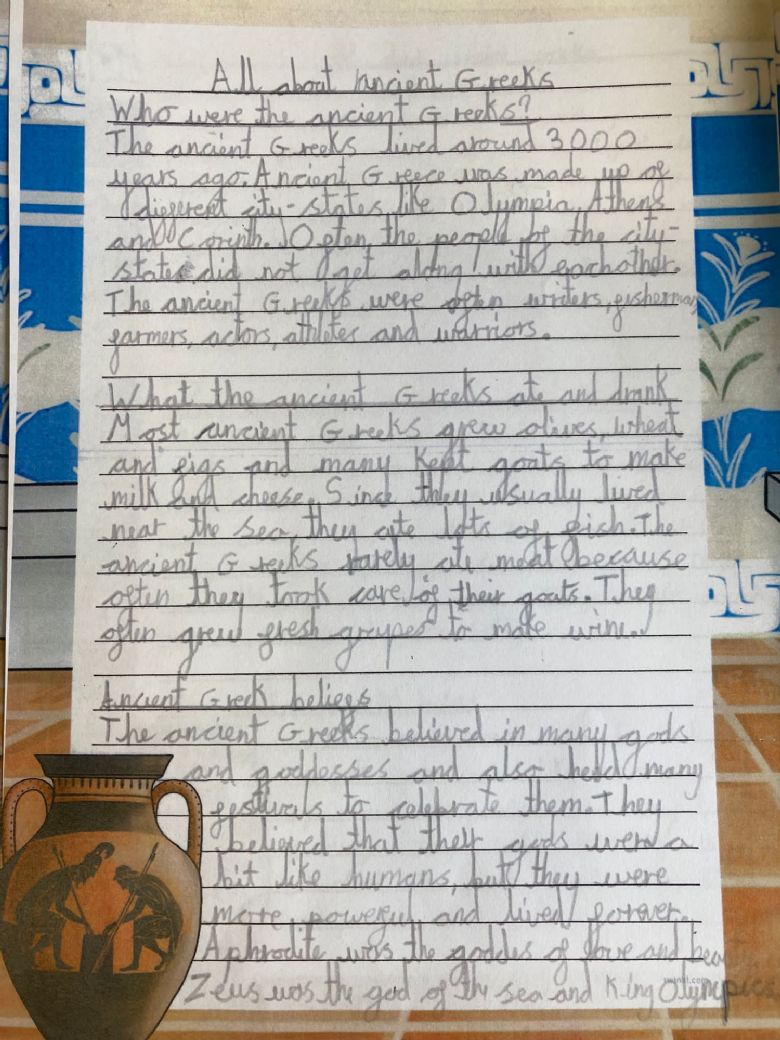 All about ancient Greeks
Who were the ancient Greeks?
The ancient Greeks lived around 3000
years ago. Ancient Greece was made up of
different city-states like Olympia, Athens
and Corinth. Often the people of the city-
states did not get along with eachother.
The ancient Greeks were often writers, fisherman,
farmers, actors, athletes and warriors.
What the ancient Greeks ate and drank
Most ancient Greeks grew olives, wheat
and figs and many kept goats to make
milk and cheese. Since they usually lived
near the sea, they ate lots of fish. The
ancient Greeks rarely ate meat because
often they took care of their goats. They
often grew fresh grapes to make wine.
Ancient Greek beliefs
The ancient Greeks believed in many gods
and goddesses and also held many
festivals to celebrate them. They
believed that their gods were a
bit like humans, but they were
more powerful and lived forever.
Aphrodite was the goddes of love and beauty
Zeus was the god of the sea and King Olympics